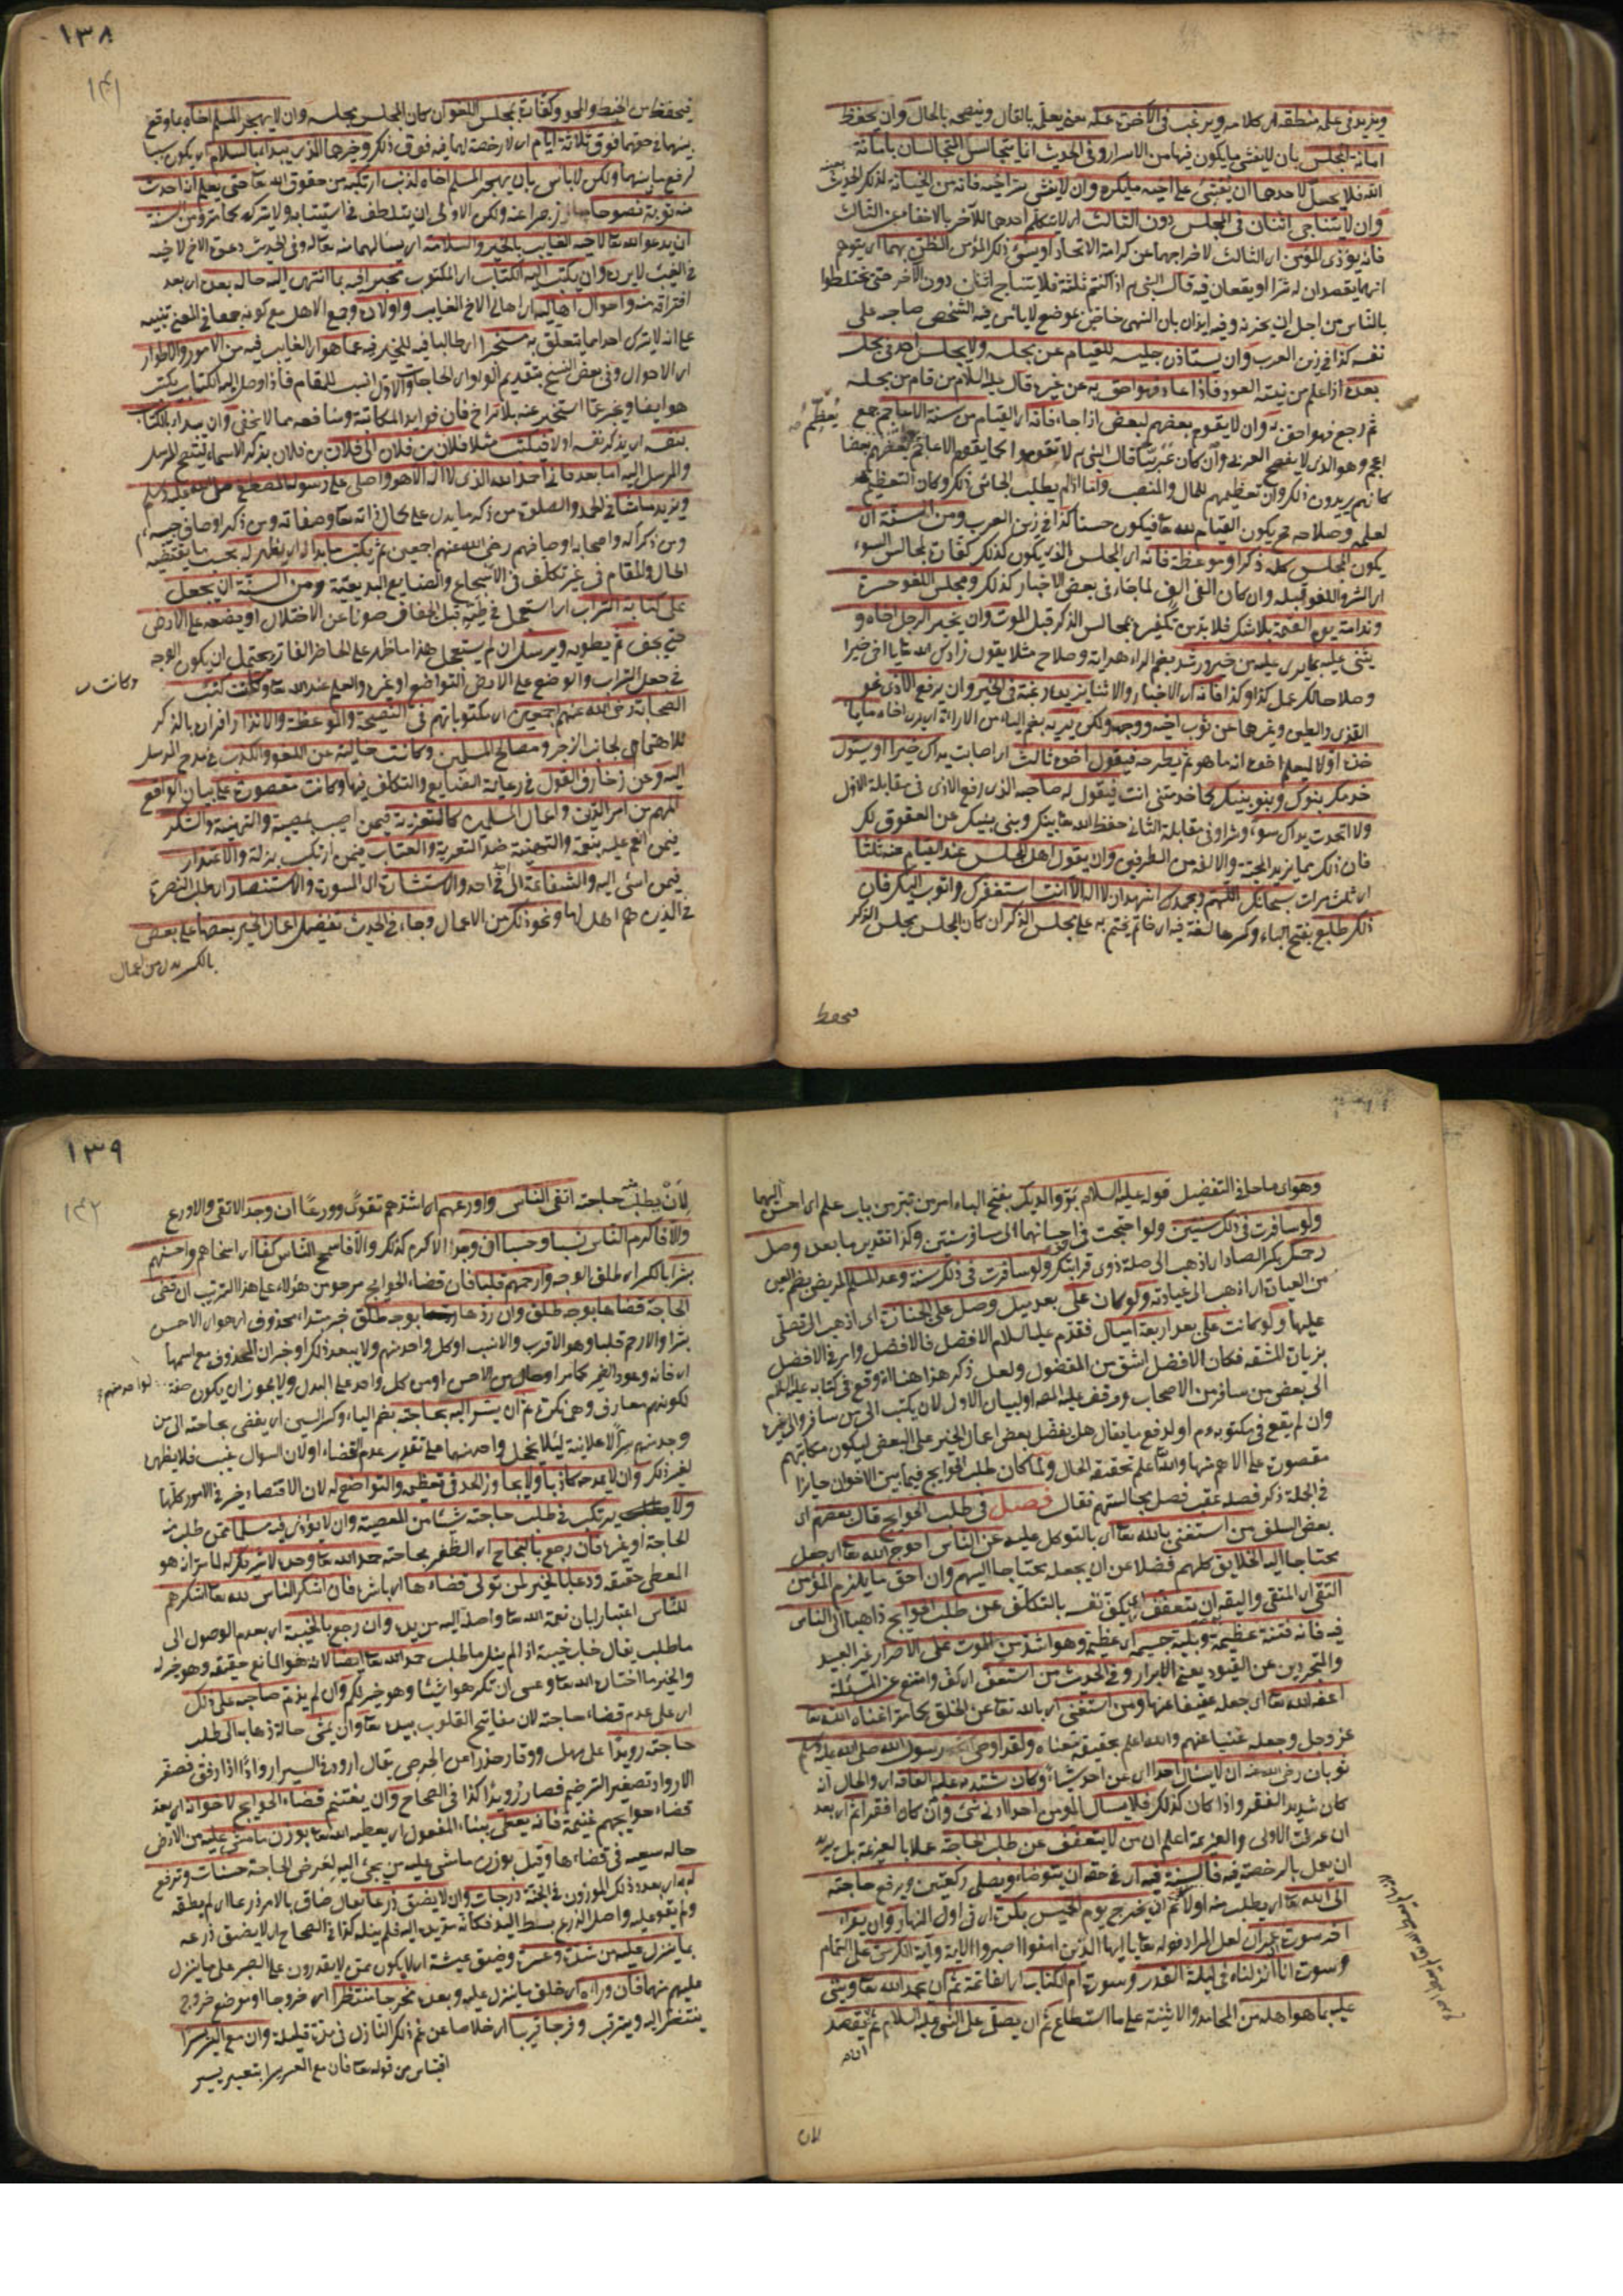 ويزيد في علمه منطقه اى كلامه ويرغب في الآخرة عمله يعنى يعلم بالقال وينصحه بالحال وان يحفظ
امانة المجلس بان لا يفشى ما يكون فيها من الاسرار وفى الحديث انما يتجالس المتجالسان بامانة
الله فلا يحل لاحدهما ان يفشى على اخيه ما يكره وان لا يفشى سر اخيه فانه من الخيانة لذلك الحديث
وان لا يتناجى اثنان فى المجلس دون الثالث اى لا يتكلم احدهما للآخر بالاخفاء عن الثالث
فانه يؤذى المؤمن اى الثالث لاخراجهما عن كرامة الاتحاد او يسئ ذلك المؤمن الظن بهما اى يتوهم
انهما يقصدان له شرا او يقعان فيه قال النبى م اذا كنتم ثلثة فلا يتناج اثنان دون الآخر حتى تختلطوا
بالناس من اجل ان يحزنه وفيه ايذان بان النهى خاص بموضع لا يأمن فيه الشخص صاحبه على
نفسه كذا فى زين العرب وان يستأذن جليسه للقيام عن مجلسه ولا يجلس احد فى مجلس
بعده اذا علم من نيته العود فاذا عاد فهو احق به من غيره قال عليه السلام من قام من مجلسه
ثم رجع فهو احق به وان لا يقوم بعضهم لبعض اذا جاء فانه اى القيام من سنة الاعاجم جمع
اعجم وهو الذى لا يفصح العربى وان كان عربيا قال النبى م لا تقوموا كما يقوم الاعاجم بعضهم بعضا
يعظم
كانهم يريدون ذلك وان تعظيمهم للمال والمنصب واما اذا لم يطلب الجائى ذلك وكان التعظيم
لعلمه وصلاحه حتى يكون القيام لله تعا فيكون حسنا كذا فى زين العرب ومن السنة ان
يكون المجلس كله ذكرا وموعظة فانه اى المجلس الذى يكون كذلك كفارة لمجالس السوء
اى الشر واللغو قبله وان كان الفى الف لما جاء فى بعض الاخبار كذلك ومجلس اللغو حسرة
وندامة يوم القيمة بلا شك فلا بد من تكفيره بمجالس الذكر قبل الموت وان يخبر الرجل اخاه و
يثنى عليه بما يرى عليه من خير ورشد بضم الراء هداية وصلاح مثلا يقول زادك الله تعا يا اخى خيرا
وصلاحا لك عمل كذا وكذا فانه اى الاخبار والاثناء يزيده رغبة فى الخير وان يرفع الاذى نحو
القذى والطين وغيرهما عن ثوب اخيه ووجهه ولكن يريه بضم الياء من الاراءة اى يرى اخاه ما يأ
خذه اولا ليعلم اخوه انه ما هو ثم يطرحه فيقول اخوه نالت اى اصابت يداك خيرا او يقول
خدمك بنوك وبنو بنيك كما خدمتنى انت فيقول له صاحبه الذى رفع الاذى فى مقابلة الاول
ولا اتحدت يداك سوء وشرا وفى مقابلة الثانى حفظ الله تعا بينك وبنى بنيك عن العقوق لك
فان ذلك مما يزيد المحبة والالفة من الطرفين وان يقول اهل المجلس عند القيام عنه ثلثا
اى ثلث مرات سبحانك اللهم وبحمدك اشهد ان لا اله الا انت استغفرك واتوب اليك فان
ذلك طابع بفتح الباء وكسرها لغة فيه اى خاتم يختم به على مجلس الذكر ان كان المجلس مجلس الذكر
فيحفظ
١٣٨
١٤١
فيحفظ من الخبط والمحو وكفارة لمجلس اللغو ان كان المجلس مجلسه وان لا يهجر المسلم اخاه بما وقع
بينهما فى حقهما فوق ثلاثة ايام اى لا رخصة لهما فيه فوق ذلك وخيرهما الذى يبدأ بالسلام اى يكون سببا
لرفع ما بينهما ولكن لا بأس بان يهجر المسلم اخاه لذنب ارتكبه من حقوق الله تعا حتى يعلم انه احدث
منه توبة نصوحا زجرا عنه ولكن الاولى ان يتلطف فى استتابه ولا يتركه كما مر ومن السنة
ان يدعو الله تعا لاخيه الغايب بالخير والسلامة اى يسألهما منه تعا له وفى الحديث دعوة الاخ لاخيه
فى الغيب لا يرد وان يكتب اليه الكتاب اى المكتوب يخبر اخيه بما انتهى اليه حاله بعد اى بعد
افتراقه منه واحوال اهاليه اى اهالى الاخ الغايب واولاده وجمع الاهل مع كونه جمعا فى المعنى تنبيه
على انه لا يترك احدا مما يتعلق به مستخبرا اى طالبا فيه للخبر فيه عما هو اى الغايب فيه من الامور والاطوار
اى الاحوال وفى بعض النسخ بتقديم الواو اى الحاجات والاول انسب للمقام فاذا وصل اليه الكتاب يكتب
هو ايضا ويخبر عما استخبر عنه بلا تراخ فان فوايد المكاتبة ومنافعه مما لا يخفى وان يبدأ بالكتاب
بنفسه اى يذكر نفسه اولا فيكتب مثلا فلان بن فلان الى فلان بن فلان بذكر الاسماء ليتضح المرسل
والمرسل اليه اما بعد فانى احمد الله الذى لا اله الا هو واصلى على رسوله المصطفى صلى الله عليه وسلم
ويزيد ما شاء فى الحمد والصلوة من ذكر ما يدل على كمال ذاته تعا وصفاته ومن ذكر اوصاف حبيبه م
ومن ذكر آله واصحابه اوصافهم رضى الله عنهم اجمعين ثم يكتب ما بدا له اى يظهر له بحسب ما يقتضيه
الحال والمقام فى غير تكلف فى الاسجاع والصنايع البديعية ومن السنة ان يجعل
على كتابه التراب اى استعمل فى طيه قبل الجفاف صونا عن الاختلال او يضعه على الارض
حتى يجف ثم يطويه ويرسل ان لم يستعمل هذا ما ظهر على الخاطر الفاتر ويحتمل ان يكون الوجه
فى جعل التراب والوضع على الارض التواضع او غيره والعلم عند الله تعا وكانت كتب
وكانت
الصحابة رضى الله عنهم اجمعين اى مكتوباتهم فى النصيحة والموعظة والانذار افراده بالذكر
للاهتمام بجانب الزجر ومصالح المسلمين وكانت خالية عن اللغو والكذب فى مدح المرسل
اليه وعن زخارف القول فى رعاية الصنايع والتكلف فيها وكانت مقصورة على بيان الواقع
المهم من امر الدين واعمال المسلمين كالتعزية فيمن اصيب بمصيبة والتهنية والشكر
فيمن انعم عليه بنعمة والتهنية ضد التعزية والعتاب فيمن ارتكب بزلة والاعتذار
فيمن اسئ اليه والشفاعة الى احد والاستشارة اليه المسورة والاستنصار اى طلب النصرة
فى الذين هم اهل لها ونحو ذلك من الاعمال وجاء فى الحديث تفضيل اعمال الخير بعضها على بعض
بالكسر بدل من اعمال
وهو اى ما دخل فى التفضيل قوله عليه السلام بر والديك بفتح الباء امر من تبر من باب علم اى احسن اليهما
ولو سافرت فى ذلك سنتين ولو احتجت فى احسانهما الى سافر سنتين وكذا تقدير ما بعده وصل
رحمك بكسر الصاد اى اذهب الى صلة ذوى قرابتك ولو سافرت فى ذلك سنة وعد المسلم المريض بضم العين
من العيادة اى اذهب الى عيادته ولو كان على بعد ميل وصل على الجنازة اى اذهب الى تصلى
عليها ولو كانت على بعد اربعة اميال فقدم عليه السلام الافضل فالافضل وامر فى الافضل
بزيادة المشقة فكان الافضل اشق من المفضول ولعل ذكر هذا هنا انه وقع فى كتابه عليه السلم
الى بعض من سافر من الاصحاب او لبيان الاول لان يكتب الى من سافر والى غيره
وان لم يقع فى مكتوبه م او لدفع ما يقال هل يفضل بعض اعمال الخير على البعض ليكون مكاتبتهم
مقصورة على الاهم منها والله تعا اعلم بحقيقة الحال ولما كان طلب الحوايج فيما بين الاخوان جايزا
فى الجملة ذكر فصله عقب فصل مجالستهم فقال فصل فى طلب الحوايج قال بعضهم اى
بعض السلف من استغنى بالله تعا اى بالتوكل عليه عن الناس احوج الله تعا اى جعل
محتاجا اليه الخلايق كلهم فضلا عن ان يجعله محتاجا اليهم وان احق ما يلزم المؤمن
التقى اى المتقى واليقه ان يتعفف اى يكف نفسه بالتكلف عن طلب الحوايج ذاهبا الى الناس
فيه فانه فتنة عظيمة وبلية جسيمة اى عظيمة وهو اشد من الموت على الاحرار غير العبيد
والمتجردين عن القيود يعنى الابرار وفى الحديث من استعف اى كف وامتنع عن المسئلة
اعفه الله تعا اى جعله عفيفا عنها ومن استغنى اى بالله تعا عن الخلق كما مر اغناه الله تعا
عز وجل وجعله غنيا عنهم والله اعلم بحقيقة معناه ولقد اوصى رسول الله صلى الله عليه وسلم
ثوبان رضى الله عنه ان لا يسأل احدا اى عن احد شيأ وكان يشتد عليه الفاقة اى والحال انه
كان شديد الفقر واذا كان كذلك فلا يسأل المؤمن احدا ادنى شئ وان كان افقر اى بعد
ان عرفت الاولى والعزيمة اعلم ان من لا يتعفف عن طلب الحاجة عملا بالعزيمة بل يريد
ان يعمل بالرخصة فيه فالسنة فيه اى فى حقه ان يتوضأ ويصلى ركعتين ويرفع حاجته
الى الله تعا اى يطلب منه اولا ثم ان يخرج يوم الخميس بكرة اى فى اول النهار وان يقرأ
آخر سورة عمران لعل المراد قوله تعا يا ايها الذين امنوا اصبروا الاية وآية الكرسى على التمام
وسورة انا انزلناه فى ليلة القدر وسورة ام الكتاب اى الفاتحة ثم ان يحمد الله تعا ويثنى
عليه بما هو اهله من المحامد والاثنية على ما استطاع ثم ان يصلى على النبى عليه السلام ثم يقصد
١٣٩
١٤٢
لان يطلب حاجته اتقى الناس واورعهم اى اشدهم تقوى وورعا ان وجد الاتقى والاورع
والا فاكرم الناس نسبا وحسبا ان وجد الاكرم كذلك والا فاسمح الناس كفا اى اسخاهم واحسنهم
بشرا بالكسر اى طلق الوجه وارحمهم قلبا فان قضاء الحوايج مرجو من هؤلاء على هذا الترتيب ان قضى
الحاجة قضاها بوجه طلق وان ردها بوجه طلق خبر مبتداء محذوف اى هو اى الاحسن
بشرا والارحم قلبا وهو الاقرب والانسب او كل واحد منهم ولا يبعد ذلك او خبر ان المحذوف مع اسمها
اى فانه وعود الضمير كما مر او من الاحسن او من كل واحد على البدل ولا يجوز ان يكون صفة
لواحد منهم
لكونهم معارف وهى نكرة ثم ان يشير اليه بحاجته بضم الياء وكسر السين اى يفضى بحاجته الى من
وجد منهم سرا لا علانية لئلا يخجل واحد منهما على تقدير عدم القضاء او لان السؤال عيب فلا يظهر
لغير ذلك وان لا يمدحه كاذبا ولا يجاوز الحد فى تعظيمه والتواضع له لان الاقتصاد خير فى الامور كلها
ولا يرتكب فى طلب حاجته شيئا من المعصية وان لا يؤذى فيه مسلما ممن طلب منه
الحاجة او غيره فان رجع بالنجاح اى الظفر بحاجته حمد الله تعا وحده لا شريك له لما مر انه هو
المعطى حقيقة ودعا بالخير لمن تولى قضاءها اى باشر فان اشكر الناس لله تعا اشكرهم
للناس اعتبارا بان نعمة الله تعا واصلة اليه من يده وان رجع بالخيبة اى بعدم الوصول الى
ما طلب يقال خاب خيبة اذا لم ينل ما طلب حمد الله تعا ايضا لانه هو المانع حقيقة وهو خير له
والخير ما اختاره الله تعا وعسى ان تكرهوا شيئا وهو خير لكم وان لم يذم صاحبه على ذلك
اى على عدم قضاء حاجته لان مفاتيح القلوب بيده تعا وان يمشى حالة ذهابه الى طلب
حاجته رويدا على مهل ووقار حذرا عن الحرص يقال ارود فى السير اروادا اذا رفق فصغر
الارواد تصغير الترخيم فصار رويدا كذا فى الصحاح وان يغتنم قضاء الحوايج لاخوانه اى يعد
قضاء حوايجهم غنيمة فانه يعطى ببناء المفعول اى يعطيه الله تعا بوزن ما مشى عليه من الارض
حالة سعيه فى قضاءها وقيل بوزن ما مشى عليه من يجئ اليه لعرض الحاجة حسنات وترفع
له اى بعدد ذلك الموزون فى الجنة درجات وان لا يضيق ذرعا يقال ضاق بالامر ذرعا اى لم يطقه
ولم يقو عليه واصل الذرع بسط اليد فكانه مد يده اليه فلم ينله كذا فى الصحاح اى لا يضيق ذرعه
بما ينزل عليه من شدة وعسرة وضيق عيشة اى لا يكون ممن لا يقدرون على الصبر على ما ينزل
عليهم منهما فان وراءه اى خلق ما ينزل عليه وبعده مخرجا منتظرا اى خروجا او موضع خروج
ينتظر اليه ويترقب وفرجا قريبا اى خلاصا عن غم ذلك النازل فى مدة قليلة وان مع العسر يسرا
اقتباس من قوله تعا فان مع العسر يسرا